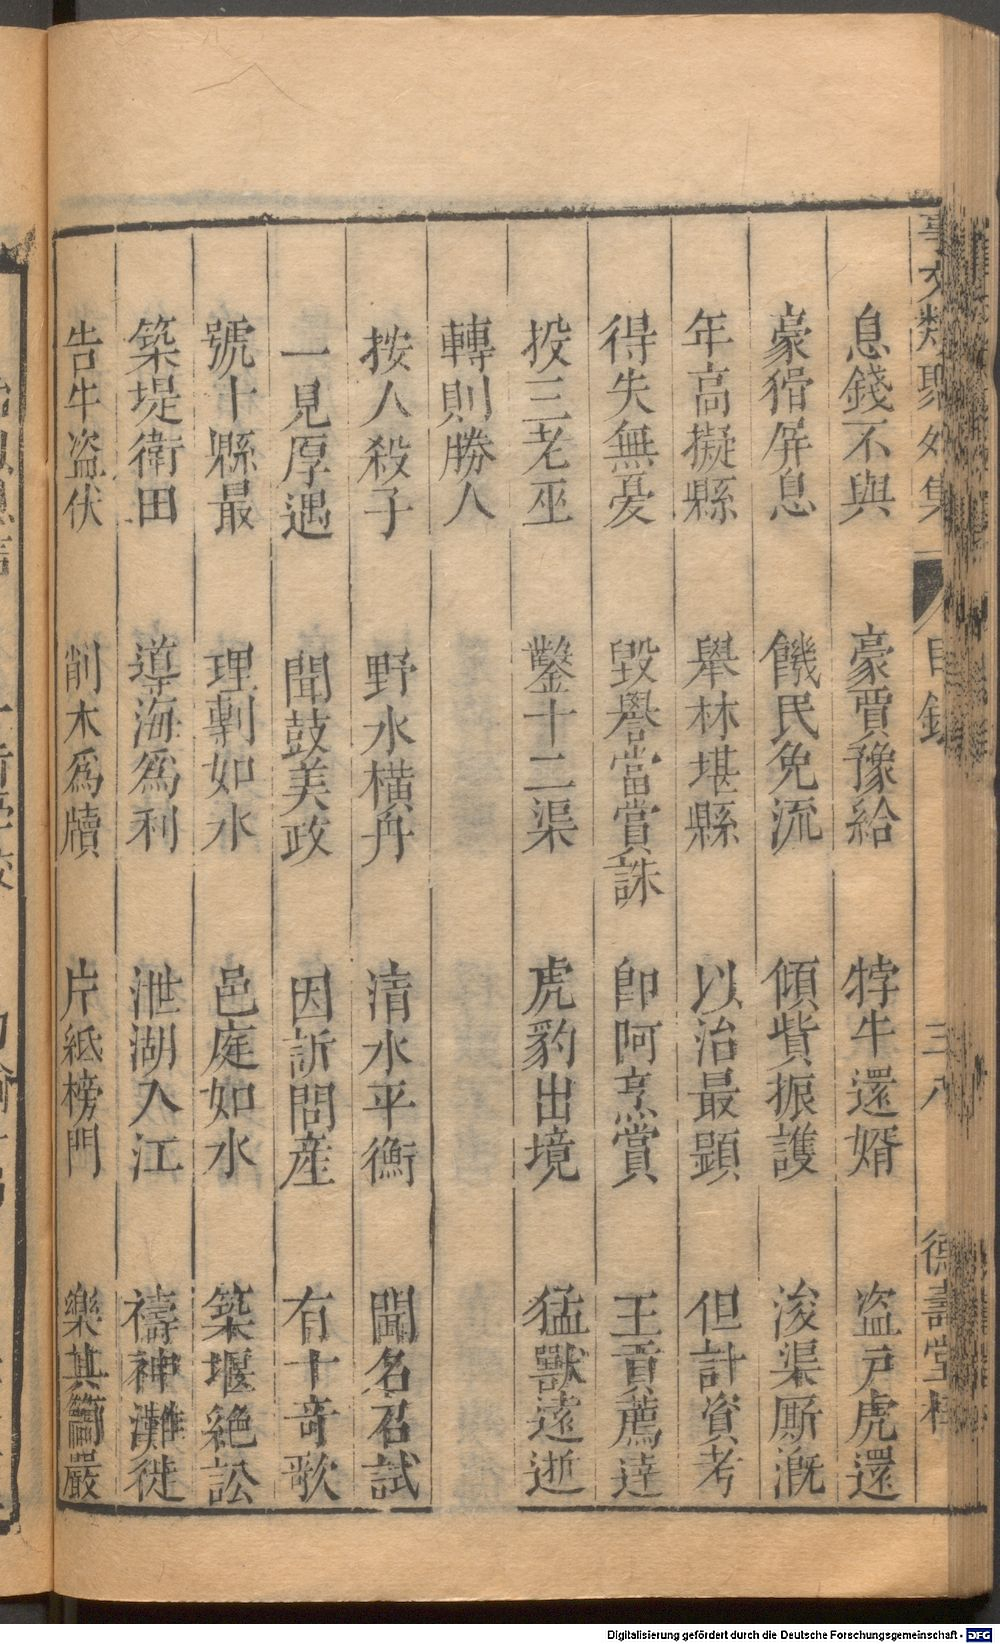 息錢不與 豪賈豫給 牸牛還婿 盜尸虎還
豪猾屏息 饑民免流 傾貲振護 浚渠厮漑
年高擬縣 舉林堪縣 以治最顕 但計資考
得失無憂 毀譽當賞誅 卽阿烹賞 王賁薦逹
投三老巫 鑿十二渠 虎豹出境 猛獸遠逝
轉則勝人
按人殺子 野水橫舟 清水平衡 聞名召試
一見厚遇 聞鼓美政 因訴問産 有十奇歌
號十縣最 理剸如水 邑庭如水 築堰絶訟
築堤衛田 導海爲利 泄湖入江 禱神灘徙
告牛盜伏 削木爲牘 片紙榜門 樂其簡嚴
事文類聚外集 目錄 三八 德壽堂梓
Digitalisierung gefördert durch die Deutsche Forschungsgemeinschaft - DFG